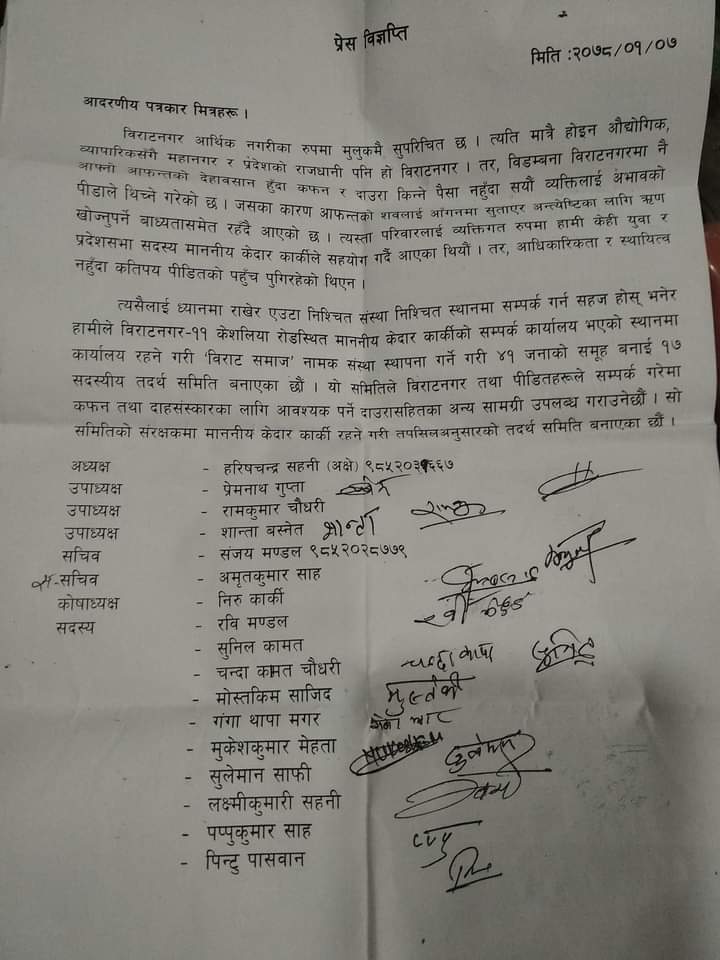 प्रेस विज्ञप्ति
मिति :२०७८/०१/०७
आदरणीय पत्रकार मित्रहरू ।
विराटनगर आर्थिक नगरीका रुपमा मुलुकमै सुपरिचित छ । त्यति मात्रै होइन औद्योगिक,
व्यापारिकसँगै महानगर र प्रदेशको राजधानी पनि हो विराटनगर । तर, विडम्बना विराटनगरमा नै
आफ्नो आफन्तको देहावसान हुँदा कफन र दाउरा किन्ने पैसा नहुँदा सयौं व्यक्तिलाई अभावको
पीडाले थिच्ने गरेको छ । जसका कारण आफन्तको शवलाई आँगनमा सुताएर अन्त्येष्टिका लागि ऋण
खोज्नुपर्ने बाध्यतासमेत रहँदै आएको छ । त्यस्ता परिवारलाई व्यक्तिगत रुपमा हामी केही युवा र
प्रदेशसभा सदस्य माननीय केदार कार्कीले सहयोग गर्दै आएका थियौं । तर, आधिकारिकता र स्थायित्व
नहुँदा कतिपय पीडितको पहुँच पुगिरहेको थिएन ।
त्यसैलाई ध्यानमा राखेर एउटा निश्चित संस्था निश्चित स्थानमा सम्पर्क गर्न सहज होस् भनेर
हामीले विराटनगर-११ केशलिया रोडस्थित माननीय केदार कार्कीको सम्पर्क कार्यालय भएको स्थानमा
कार्यालय रहने गरी 'विराट समाज' नामक संस्था स्थापना गर्ने गरी ४१ जनाको समूह बनाई १७
सदस्यीय तदर्थ समिति बनाएका छौं । यो समितिले विराटनगर तथा पीडितहरूले सम्पर्क गरेमा
कफन तथा दाहसंस्कारका लागि आवश्यक पर्ने दाउरासहितका अन्य सामग्री उपलब्ध गराउनेछौं । सो
समितिको संरक्षकमा माननीय केदार कार्की रहने गरी तपसिलअनुसारको तदर्थ समिति बनाएका छौं ।
अध्यक्ष - हरिषचन्द्र सहनी (अक्षे)
उपाध्यक्ष - प्रेमनाथ गुप्ता
उपाध्यक्ष - रामकुमार चौधरी
उपाध्यक्ष - शान्ता बस्नेत शान्ता
सचिव - संजय मण्डल ९८५२०२८७७९
स-सचिव - अमृतकुमार साह
कोषाध्यक्ष - निरु कार्की
सदस्य - रवि मण्डल
- सुनिल कामत
- चन्दा कामत चौधरी
- मोस्तकिम साजिद
- गंगा थापा मगर
- मुकेशकुमार मेहता
- सुलेमान साफी
- लक्ष्मीकुमारी सहनी
- पप्पुकुमार साह
- पिन्टु पासवान